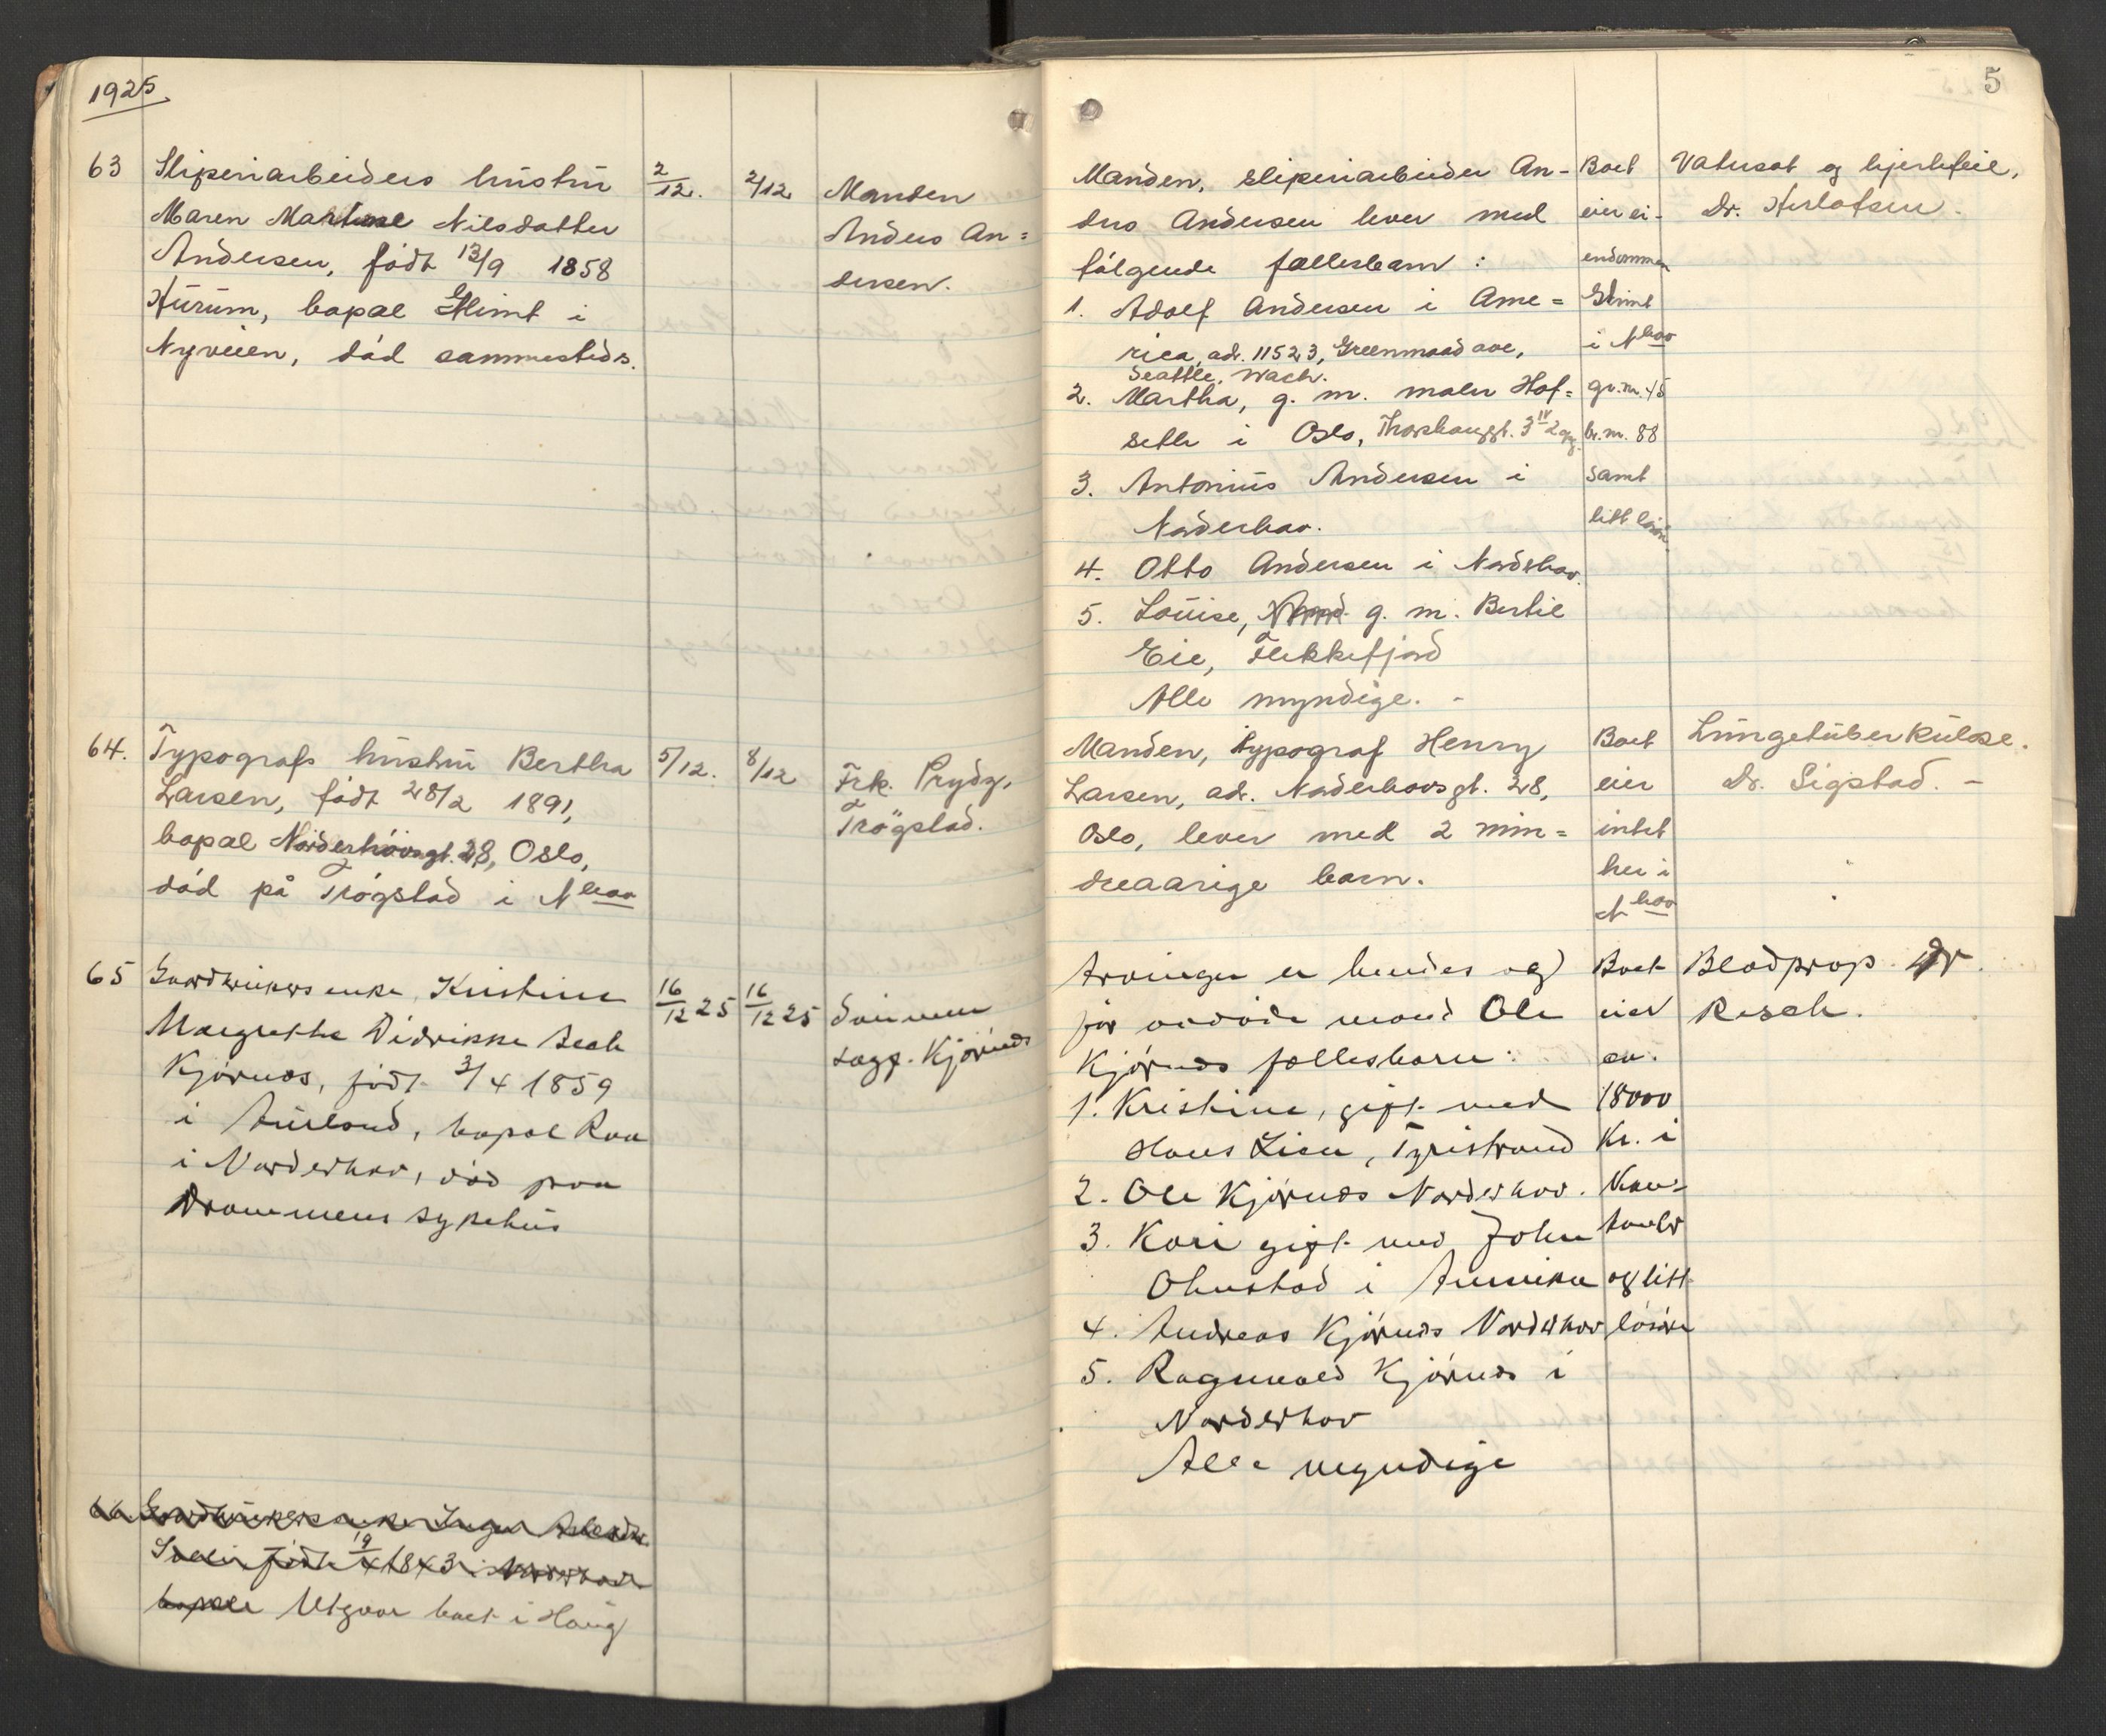 1925
63 Sliperiarbeiders hustru
Maren Martinse Nilsdatter
Andersen, født 13/9 1858
Hurum, bopæl Glimt i
Nyveien, død sammesteds.
2/12. 2/12
Manden
Anders An=
dersen.
64. Typografs hustru Bertha
Larsen, født 28/2 1891,
bopæl Norderhovsgt. 28, Oslo,
død på Trøgstad i Nhov
5/12. 8/12
Frk. Prydz,
Trögstad.
65 Gaardbrukers enke, Kristine
Margrethe Didrikke
Kjörnås, født 3/4 1859
i Aurland, bopæl Raa
i Norderhov, död paa
Drammens sykehus
16/12 25 16/12 25
Sönnen
Kjörnås
66. Gaardbrukers enke Inger
født 19/4 1843 i Norderhov
bopæl Utgaar boet i Haug
5
Manden, sliperiarbeider An-
ders Andersen lever med
følgende fællesbarn:
1. Adolf Andersen i Ame=
rica, adr. 11523, Greenwood ave,
Seattle, Wach.
2. Martha, g. m. maler Hof=
seth i Oslo, 3 IV 2 opg.
3. Antonius Andersen i
Norderhov.
4. Otto Andersen i Nordrhov.
5. Louise, g. m. Bertil
Eie, Flekkefjord
Alle myndige. -
Boet
eier ei-
endommen
Glimt
i Nhov
gr. nr. 45
br. nr. 88
samt
litt løsøre
Vatersot og hjertefeil,
Dr. Herlofsen.
Manden, typograf Henry
Larsen, adr. Norderhovsgt. 28,
Oslo, lever med 2 min=
dreaarige barn.
Boet
eier
intet
her i
Nhov
Lungetuberkulose.
Dr. Sigstad. -
Arvinger er hendes og
før avdöde mand Ole
Kjörnås fællesbarn:
1. Kristine, gift med
Hans Lien, Tyristrand
2. Ole Kjörnås Norderhov.
3. Kari gift med John
Olmstad i Amerika
4. Andreas Kjörnås Norderhov
5. Ragnvald Kjörnås i
Norderhov
Alle myndige
Boet
eier
ca.
18000
Kr. i
Kon=
tanter
og litt
lösöre
Blodprop. Dr
Resch.